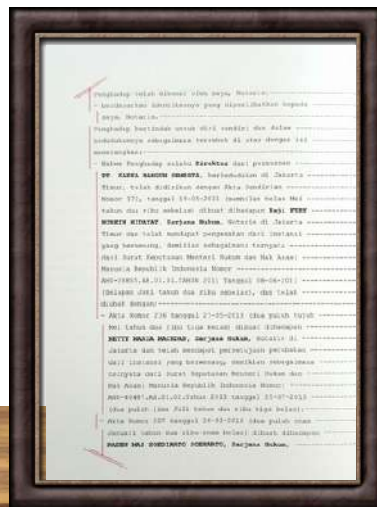 Penghadap telah dikenal oleh saya, Notaris.
- berdasarkan identitasnya yang diperlihatkan kepada
saya, Notaris.
Penghadap bertindak untuk diri sendiri dan dalam
kedudukannya sebagaimana tersebut di atas dengan ini
menerangkan:
- Bahwa Penghadap selaku Direktur dari perseroan
PT. BANGUN, berkedudukan di Jakarta
Timur, telah didirikan dengan Akta Pendirian
Nomor, tanggal 19-05-2011 (sembilan belas Mei
tahun dua ribu sebelas) dibuat dihadapan Haji
HIDAYAT, Sarjana Hukum, Notaris di Jakarta
Timur dan telah mendapat pengesahan dari instansi
yang berwenang, demikian sebagaimana ternyata
dari Surat Keputusan Menteri Hukum dan Hak Asasi
Manusia Republik Indonesia Nomor
Tanggal 08-06-2011
(delapan Juni tahun dua ribu sebelas), dan telah
diubah dengan:
- Akta Nomor 236 tanggal 27-05-2013 (dua puluh tujuh
Mei tahun dua ribu tiga belas) dibuat dihadapan
NETTY MARIA MACHDAR, Sarjana Hukum, Notaris di
Jakarta dan telah mendapat persetujuan perubahan
dari instansi yang berwenang, demikian sebagaimana
ternyata dari Surat Keputusan Menteri Hukum dan
Hak Asasi Manusia Republik Indonesia Nomor:
Tahun 2013 tanggal
(dua puluh Juli tahun dua ribu tiga belas).
- Akta Nomor tanggal (dua puluh enam
Januari tahun dua ribu enam belas) dibuat dihadapan
RADEN MAS SOEDIARTO SOENARTO, Sarjana Hukum,